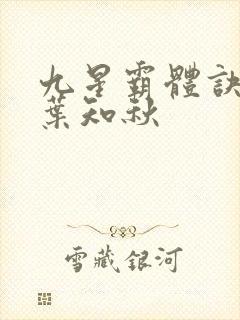 九星霸體訣
葉知秋
雪藏銀河